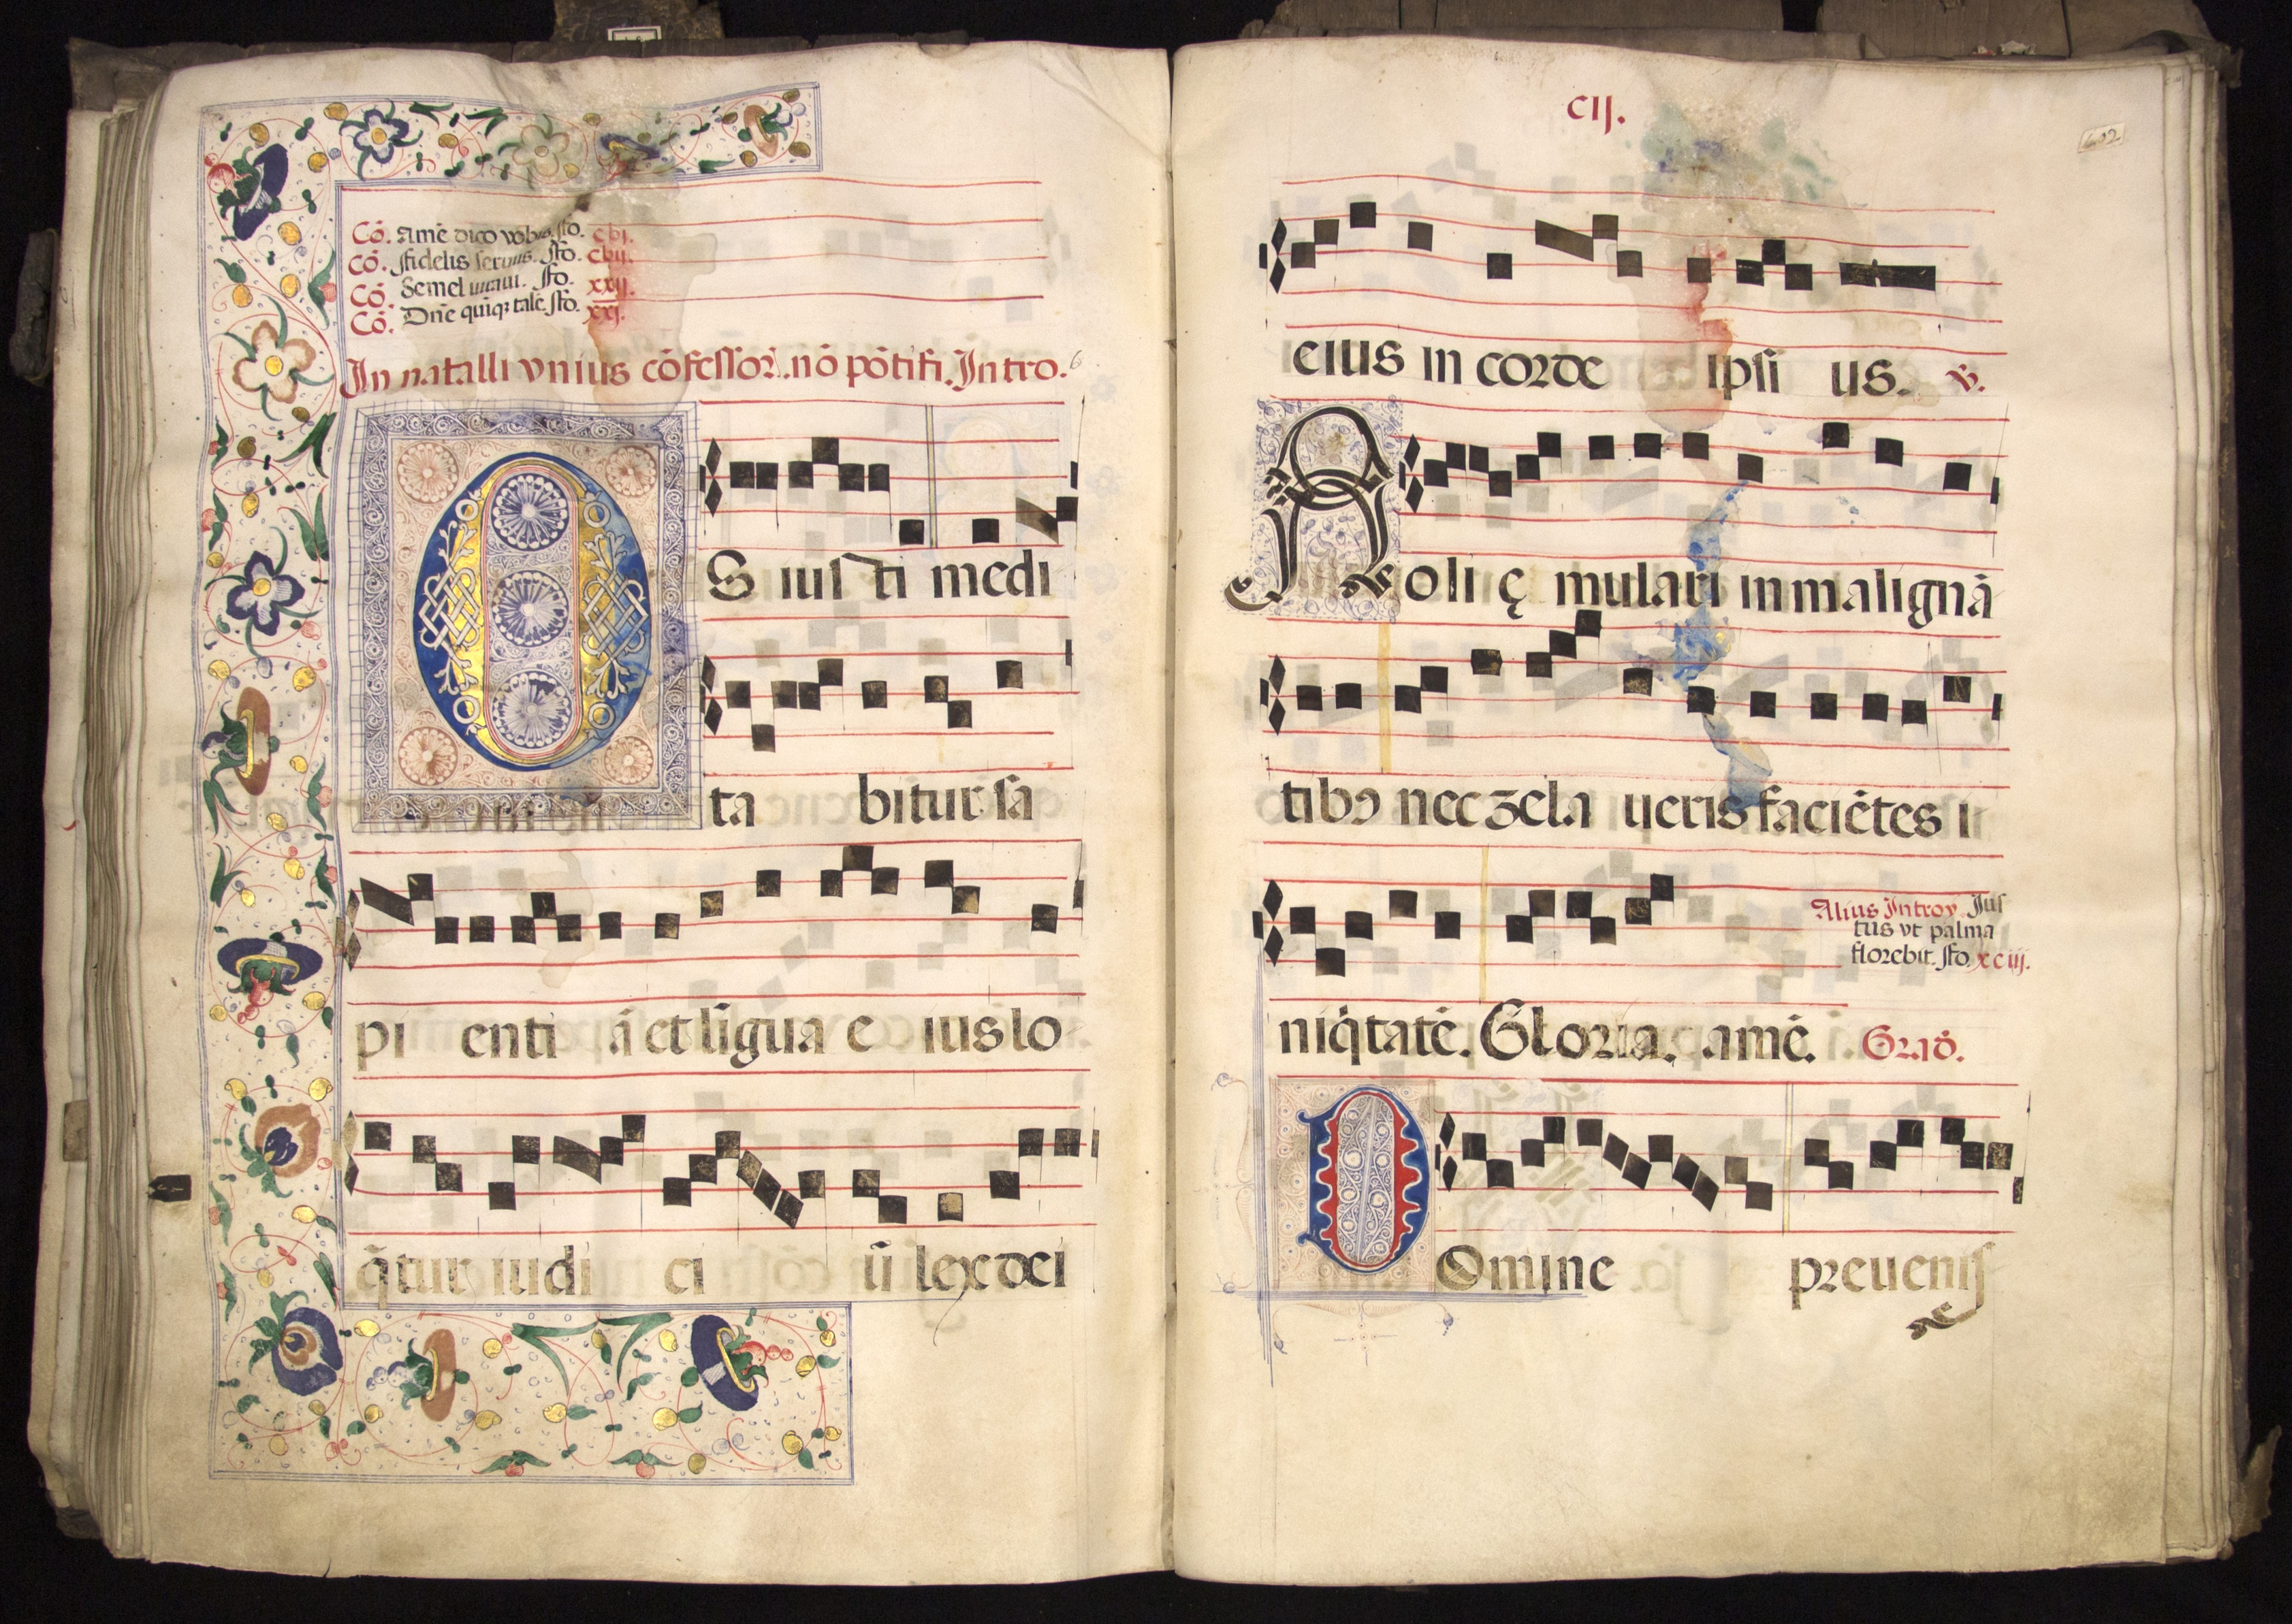 Cō. Amē dico vobis. fo. cbi.
Cō. fidelis seruus. fo. cbii.
Cō. Semel iuraui. fo. xxij.
Cō. Dn̄e quiqȝ talē. fo. xxi.
In natalli vnius cōfessor̄. nō pōtifi. Intro.
OS iusti medi
ta bitur sa
pi enti ā et līgua e ius lo
q̄tur iudi ci ū lex dei
CIJ.
eius in corde ipsi us. v̄.
Noli ę mulari in malignā
tibꝰ nec zela ueris faciētes i
Alius Introy. Jus
tus vt palma
florebit. fo. xciij.
niq̇tatē. Gloria. amē. Graď.
DOmine preuenis